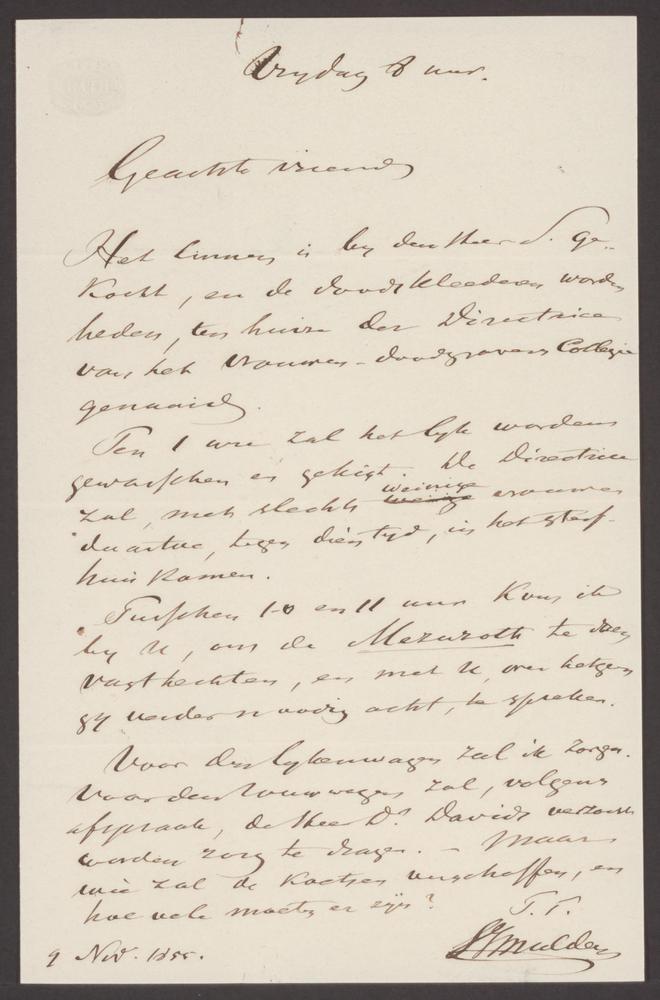 Vrydag 8 uur.
Geachte vriend
Het linnen is by den Heer S. Ge-
kocht, en de doodskleederen worden
heden, ten huize der Directrice
van het vrouwen-doodgravers Collegie
genaaid.
Ten 1 ure zal het lyk worden
gewasschen en gekist. De Directrice
zal, met slechts weinige vrouwen
daartoe, tegen dien tyd, in het sterf-
huis komen.
Tusschen 10 en 11 uur kom ik
by U, om de Mezuzoth te doen
vasthechten, en met U, over hetgeen
gy verder noodig acht, te spreken.
Voor den lykenwagen zal ik zorgen.
Voor den rouwwagen zal, volgens
afspraak, de Heer Dr. Davids verzocht
worden zorg te dragen. - Maar
wie zal de koetsen verschaffen, en
hoe vele moeten er zyn?
T.T.
SMulder
9 Nov. 1855.